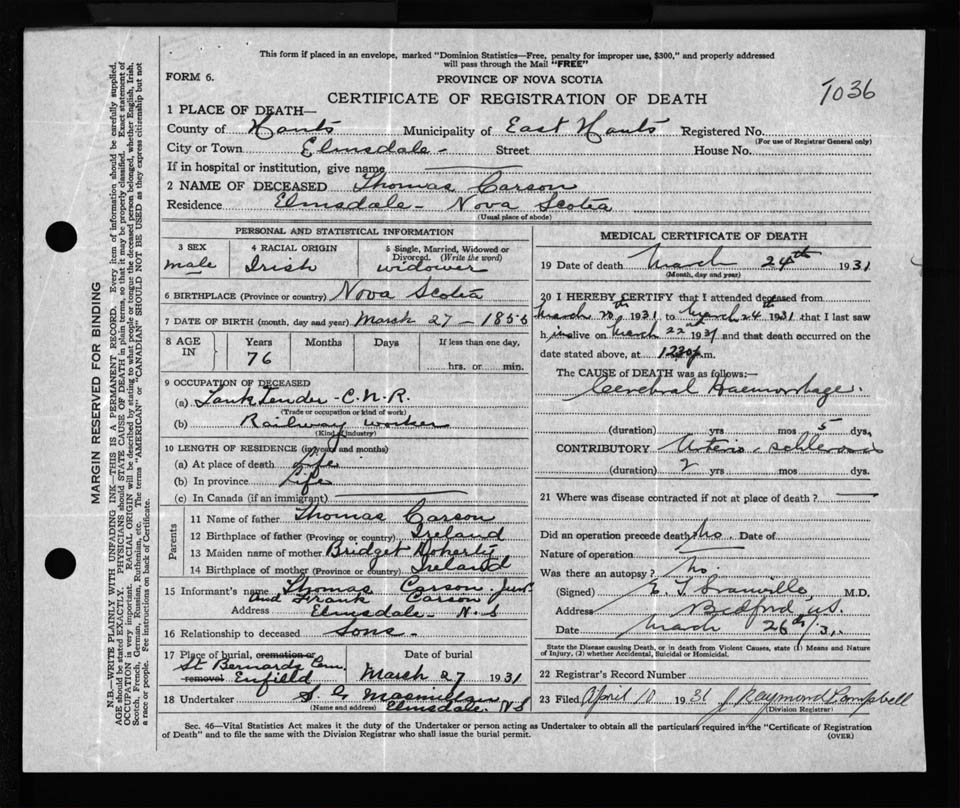 This form if placed in an envelope, marked "Dominion Statistics—Free, penalty for improper use, $300," and properly addressed
will pass through the Mail "FREE"
FORM 6.
PROVINCE OF NOVA SCOTIA
1036
CERTIFICATE OF REGISTRATION OF DEATH
1 PLACE OF DEATH—
County of Hants Municipality of East Hants Registered No.
(For use of Registrar General only)
City or Town Elmsdale - Street House No.
If in hospital or institution, give name
2 NAME OF DECEASED Thomas Carson
Residence Elmsdale - Nova Scotia
(Usual place of abode)
PERSONAL AND STATISTICAL INFORMATION
3 SEX 4 RACIAL ORIGIN 5 Single, Married, Widowed or Divorced. (Write the word)
male Irish widower
6 BIRTHPLACE (Province or country) Nova Scotia
7 DATE OF BIRTH (month, day and year) March 27 - 1855
8 AGE IN Years Months Days If less than one day,
76 hrs. or min.
9 OCCUPATION OF DECEASED
(a) Tank Tender - C.N.R.
(Trade or occupation or kind of work)
(b) Railway worker
(Kind of industry)
10 LENGTH OF RESIDENCE (in years and months)
(a) At place of death Life
(b) In province Life
(c) In Canada (if an immigrant)
Parents
11 Name of father Thomas Carson
12 Birthplace of father (Province or country) Ireland
13 Maiden name of mother Bridget Doherty
14 Birthplace of mother (Province or country) Ireland
15 Informant's name Thomas Carson Junr
and Frank Carson
Address Elmsdale - N.S
16 Relationship to deceased Sons -
17 Place of burial, cremation or removal Date of burial
St Bernards Cem.
Enfield March 27 1931
18 Undertaker S. G Macmillan
(Name and address) Elmsdale. N.S
MEDICAL CERTIFICATE OF DEATH
19 Date of death March 24th 1931
(Month, day and year)
20 I HEREBY CERTIFY that I attended deceased from
March 20th 1931 to March 24th 1931 that I last saw
h im alive on March 22 1931 and that death occurred on the
date stated above, at 12.30 p.m.
The CAUSE of DEATH was as follows:—
Cerebral Haemorrhage.
(duration) yrs. mos 5 dys.
CONTRIBUTORY
(duration) 2 yrs mos. dys.
21 Where was disease contracted if not at place of death?
Did an operation precede death? No. Date of
Nature of operation
Was there an autopsy? No.
(Signed) M.D.
Address Bedford, N.S.
Date March 26th/31.
State the Disease causing Death, or in death from Violent Causes, state (1) Means and Nature
of Injury, (2) whether Accidental, Suicidal or Homicidal.
22 Registrar's Record Number
23 Filed April 10 1931 J Raymond Campbell
(Division Registrar)
Sec. 46—Vital Statistics Act makes it the duty of the Undertaker or person acting as Undertaker to obtain all the particulars required in the "Certificate of Registration
of Death" and to file the same with the Division Registrar who shall issue the burial permit.
(OVER)
MARGIN RESERVED FOR BINDING
N.B.—WRITE PLAINLY WITH UNFADING INK—THIS IS A PERMANENT RECORD. Every item of information should be carefully supplied.
AGE should be stated EXACTLY. PHYSICIANS should STATE CAUSE OF DEATH in plain terms, so that it may be properly classified. Exact statement of
OCCUPATION is very important. RACIAL ORIGIN will be described by stating to what people or tongue the deceased person belonged, whether English, Irish,
Scotch, French, German, Russian, Ruthenian, etc. The terms "AMERICAN" or "CANADIAN" SHOULD NOT BE USED as they express citizenship but not
a race or people. Fee instructions on back of Certificate.